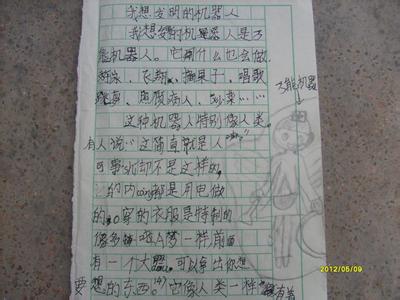 我想发明的机器人
我想发明的机器人是万
能机器人。它什么也会做
衣服、摘果子、唱歌
跳舞、照顾病人、炒菜……
这种机器人特别像人类。
有人说:“这简直就是人
可事实却不是这样的,
它的内cang都是用电做
的。穿的衣服是特制的
像多啦A梦一样,前面
有一个大器,可以拿出你想
要想的东西。它像人类一样
万能机器
2012/05/09